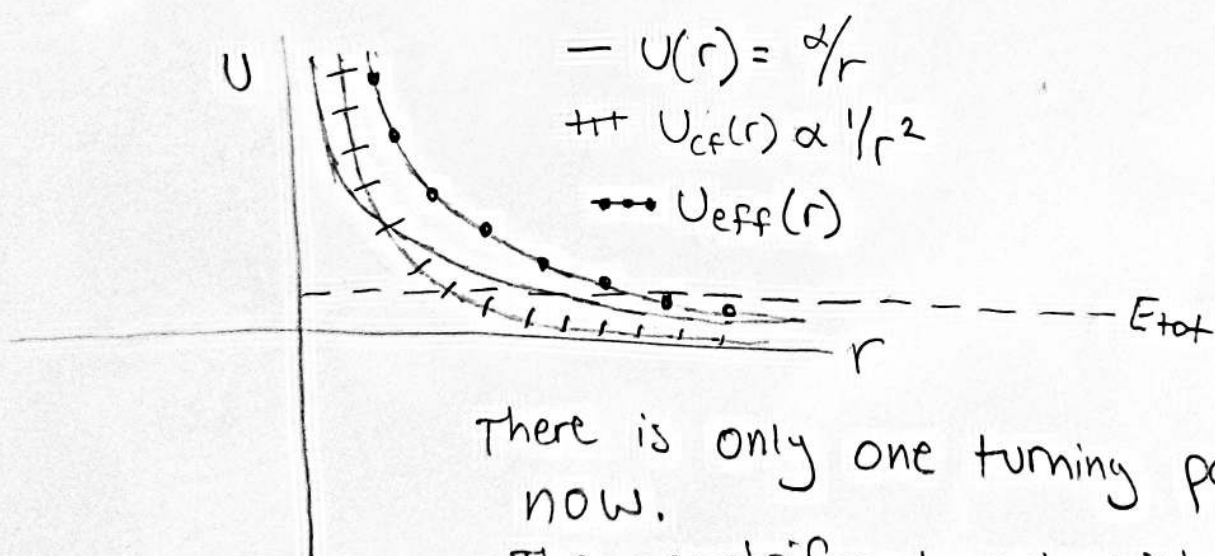 U
— U(r) = α/r
+++ U_cf(r) α 1/r²
•-•-• U_eff(r)
E_tot
r
There is only one turning
now.